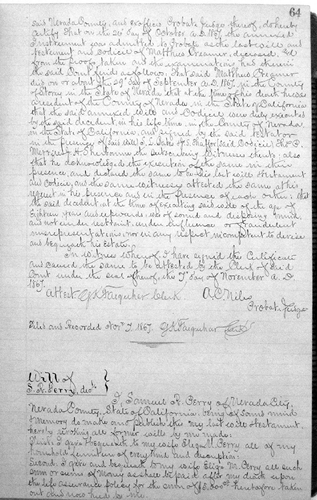 64
said Nevada County, and exofficio Probate Judge thereof, do hereby
certify that on the day of October A.D. 1867, the annexed
Instrument was admitted to Probate as the last will and
testament and Codicil of Matthew deceased, and
from the proofs taken and the examination had therein
the said Court finds as follows: That said Matthew
died on or about the 29th day of September A.D. 1867, in the County
of Storey in the State of Nevada that at the time of his death he was
a resident of the County of Nevada in the State of California
that the said annexed Will and Codicil were duly executed
by the said decedent in his life time in the County of Nevada
in the State of California, and signed by the said testator
in the presence of
the subscribing witnesses thereto; also
that he acknowledged the execution of the same in their
presence, and declared the same to be his last will & testament
and Codicil, and the said witnesses attested the same at his
request in his presence and in the presence of each other; that
the said decedent at the time of executing said will was of the age of
Eighteen years and upwards, was of sound and disposing mind,
and not under restraint, undue influence or fraudulent
misrepresentations, nor in any respect incompetent to devise
and bequeath his estate.
In witness whereof I have signed this Certificate
and caused the same to be attested by the Clerk of said
Court under the seal thereof, the 7 day of November A.D.
1867.
Attest Farquhar Clerk A.C. Niles
Probate Judge
Filed and Recorded Nov. 7, 1867. Farquhar Clerk
Will of
Perry, dec'd
I, Samuel R. Perry of Nevada City,
Nevada County, State of California being of sound mind
& memory do make and publish this my last will & testament,
hereby revoking all former wills by me made:
First: I give & bequeath to my wife Eliza M. Perry all of my
household furniture of every kind and description:
Second: I give and bequeath to my wife Eliza M. Perry all such
sum or sums of Money as she may after my death upon
the life assurance policy for the sum of $5.000 heretofore taken
out